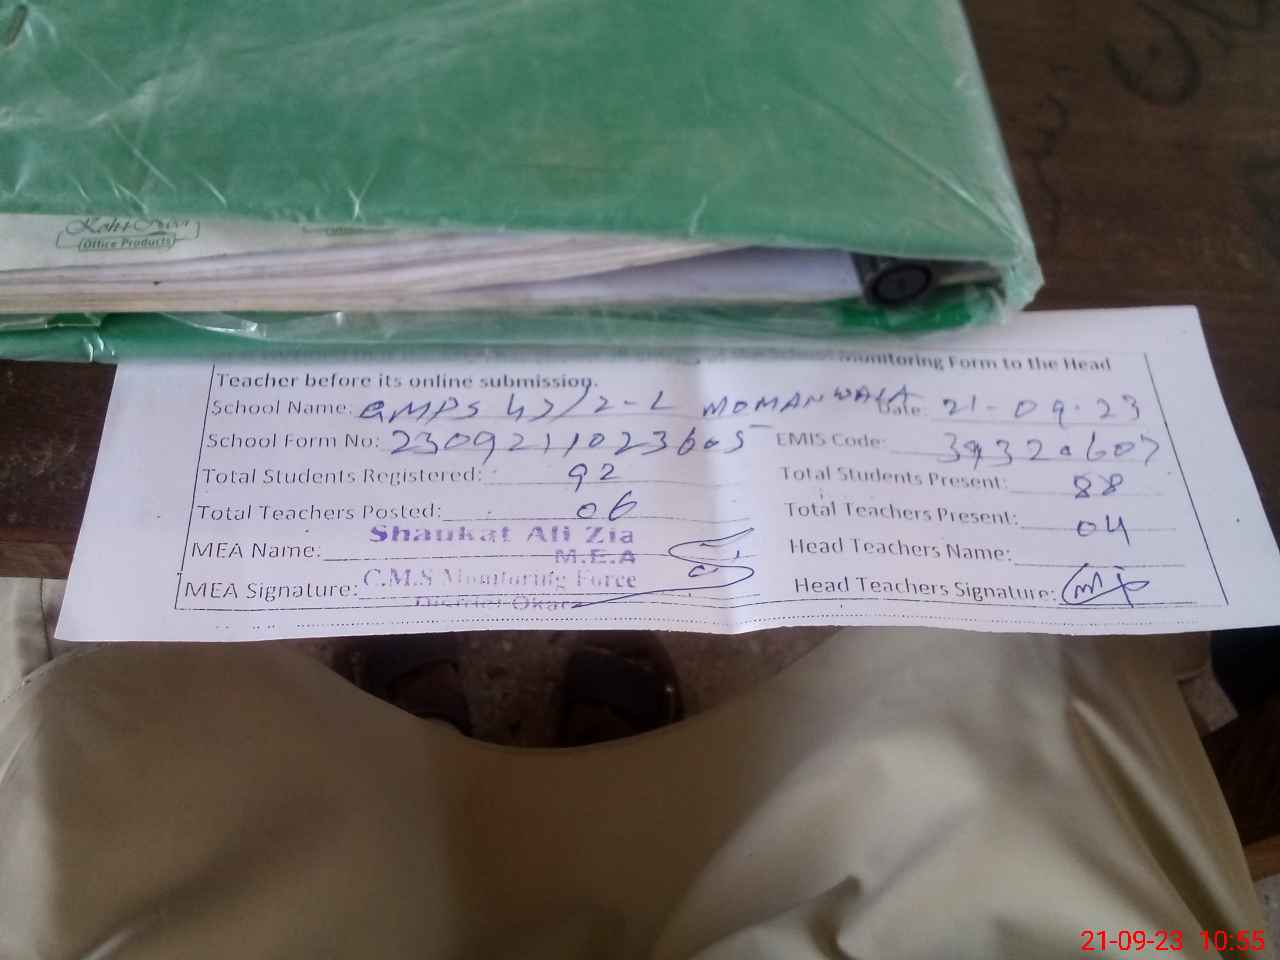 Office Products
Monitoring Form to the Head
Teacher before its online submission.
School Name: GMPS 47/2-L MOMANWALA Date: 21-09-23
School Form No: 2309211023605 EMIS Code: 39320607
Total Students Registered: 92 Total Students Present: 88
Total Teachers Posted: 06 Total Teachers Present: 04
Shaukat Ali Zia
MEA Name: M.E.A Head Teachers Name:
MEA Signature: C.M.S Monitoring Force Head Teachers Signature:
District Okara
21-09-23 10:55